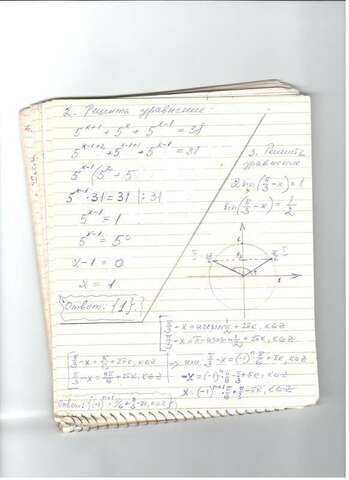 2. Решить уравнение:
5^(x+1) + 5^x + 5^(x-1) = 31
5^(x-1+2) + 5^(x-1+1) + 5^(x-1) = 31
5^(x-1)(5² + 5
5^(x-1) · 31 = 31 | : 31
5^(x-1) = 1
5^(x-1) = 5⁰
x - 1 = 0
x = 1
Ответ: {1}.
3. Решить
уравнение
2sin(π/3 - x) = 1
sin(π/3 - x) = 1/2
π/3 - x = arcsin 1/2 + 2πk, k∈Z
π/3 - x = π - arcsin 1/2 + 2πk, k∈Z
π/3 - x = π/6 + 2πk, k∈Z
π/3 - x = 5π/6 + 2πk, k∈Z
π/3 - x = (-1)^k π/6 + πk, k∈Z
-x = (-1)^k π/6 - π/3 + πk, k∈Z
x = (-1)^(k+1) π/6 + π/3 - πk, k∈Z
Ответ: {(-1)^(k+1) · π/6 + π/3 - πk, k∈Z}